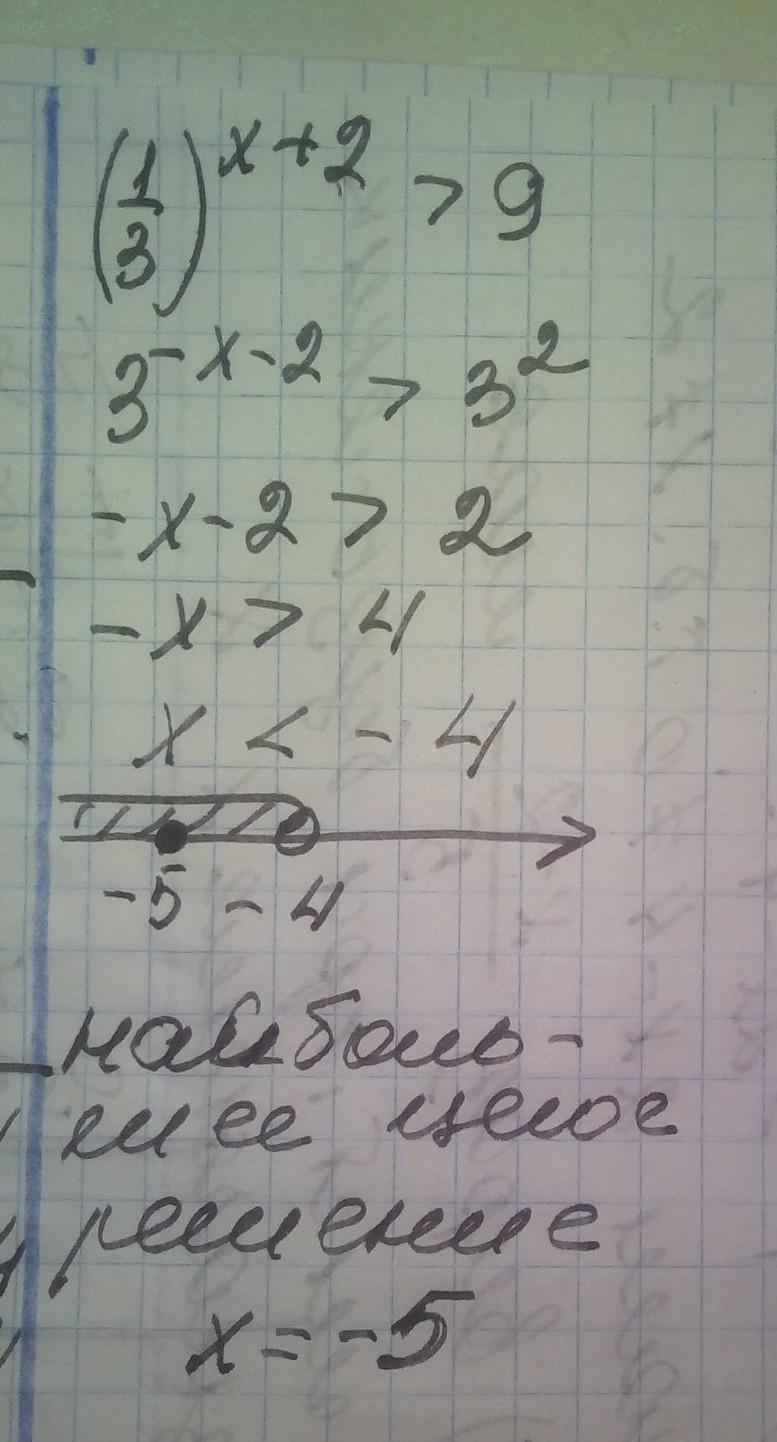 (1/3)^(x+2) > 9
3^(-x-2) > 3^2
-x-2 > 2
-x > 4
x < -4
-5 -4
наиболь-
шее целое
решение
x = -5